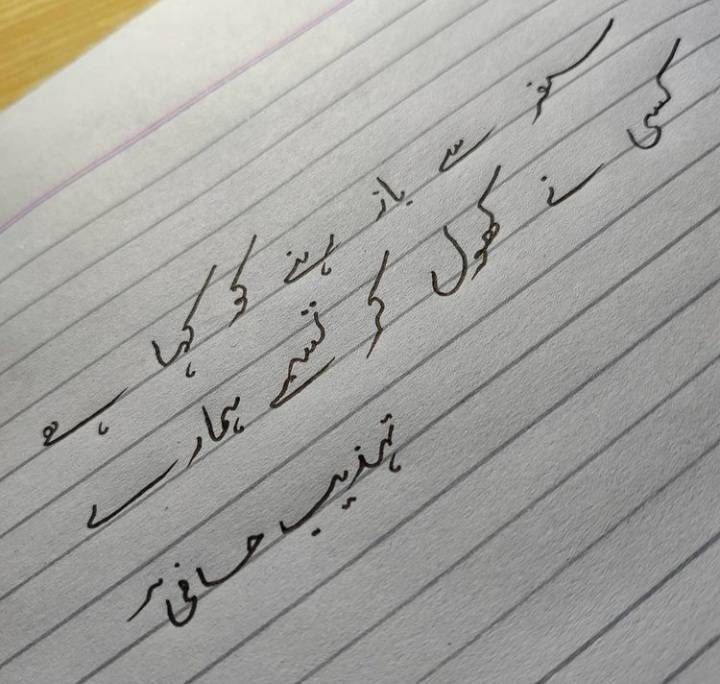 سفر سے باز رہنے کو کہا ہے
کسی نے کھول کر تسمے ہمارے
تہذیب حافی